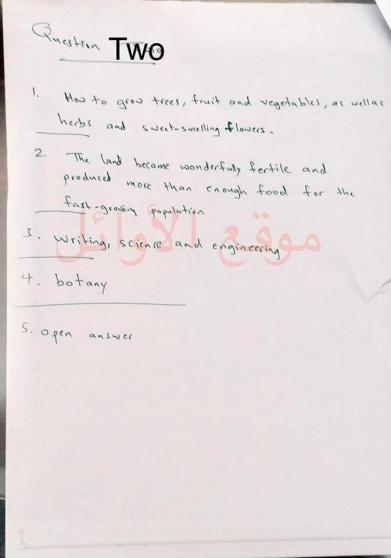 Question Two
1. How to grow trees, fruit and vegetables, as well as
herbs and sweet-smelling flowers.
2. The land became wonderfully fertile and
produced more than enough food for the
fast-growing population
موقع الأوائل
3. writing, science and engineering
4. botany
5. open answer